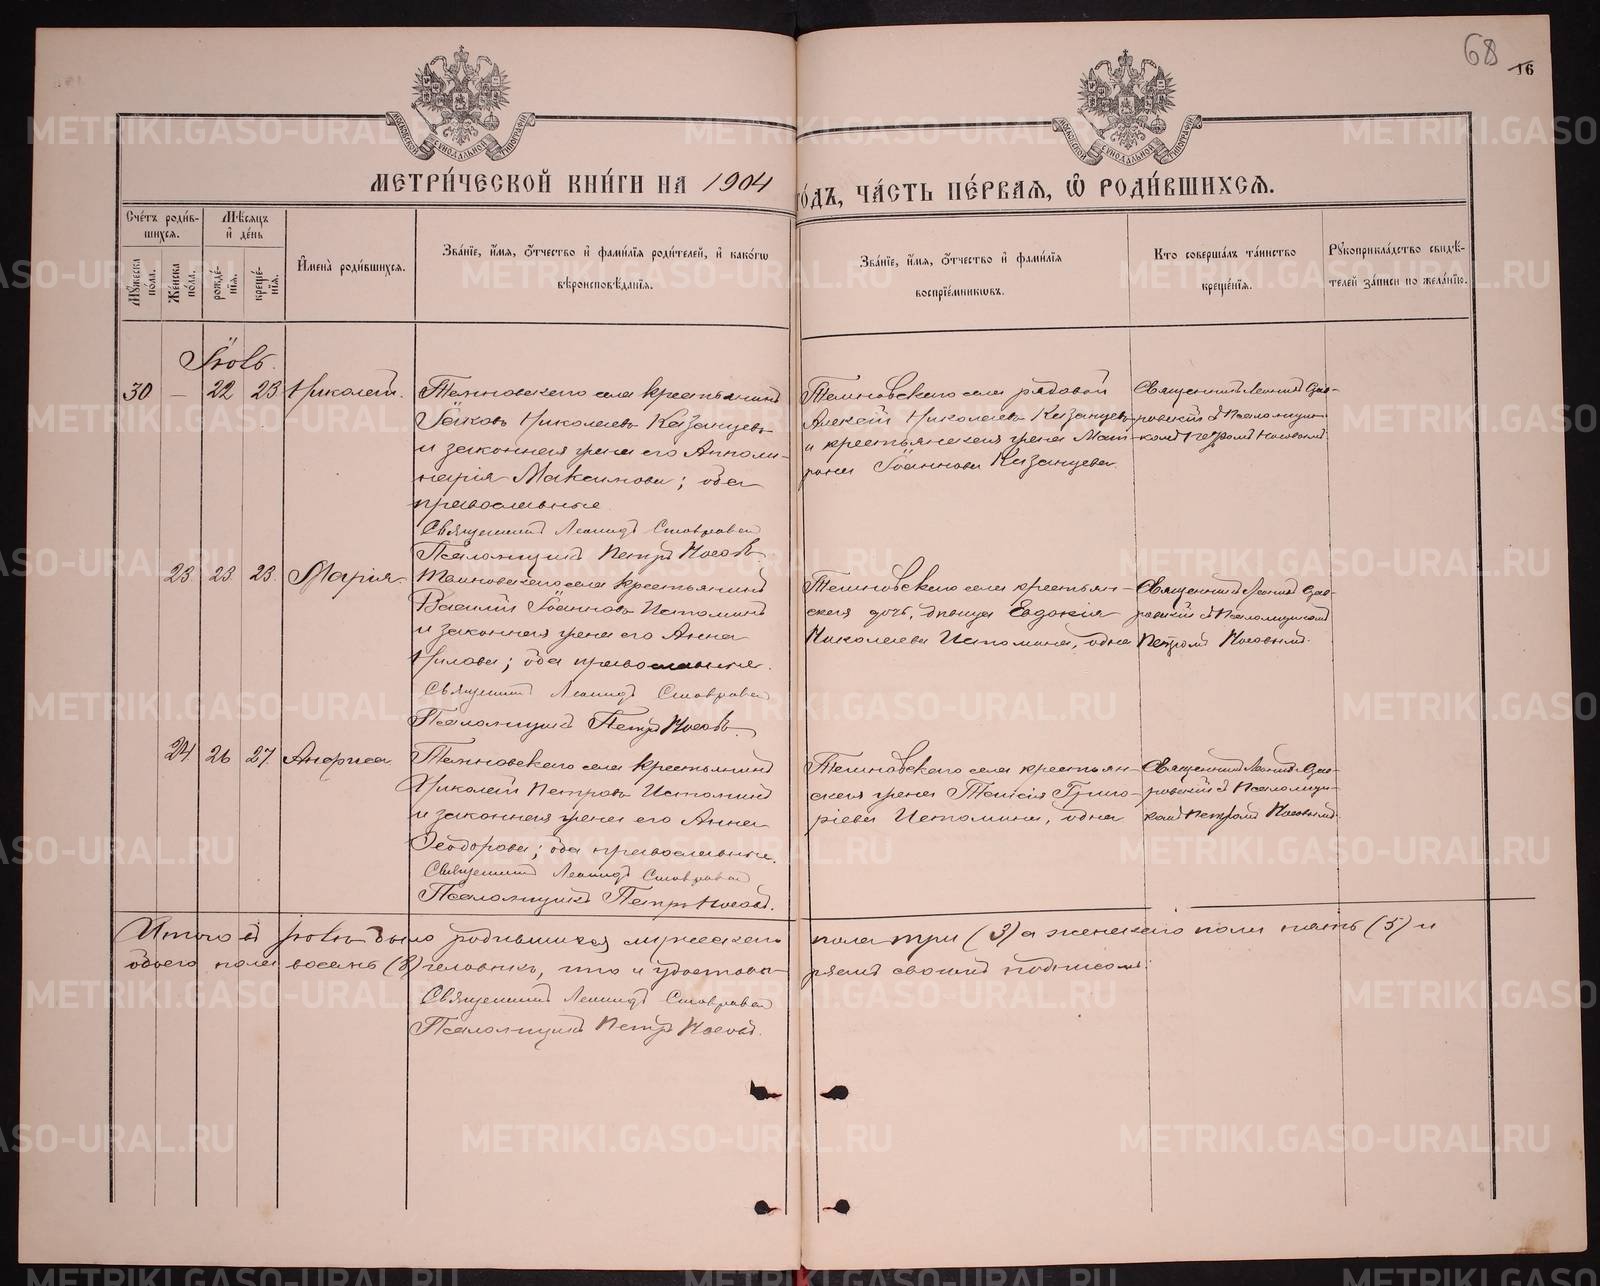 68
16
МЕТРИ́ЧЕСКОЙ КНИ́ГИ НА 1904 ГО́ДЪ, ЧА́СТЬ ПЕ́РВАЯ, Ѡ РОДИ́ВШИХСЯ.
Сче́тъ роди́в-
шихся.
Мѣ́сяцъ
и҆ де́нь
Мꙋ́жеска
по́ла.
Же́нска
по́ла.
рожде́-
нїя.
креще́-
нїя.
И҆мена̀ роди́вшихся.
Зва́нїе, и҆́мя, ѻ҆́тчество и҆ фами́лїя роди́телей, и҆ како́гѡ
вѣроисповѣ́данїя.
Зва́нїе, и҆́мя, ѻ҆́тчество и҆ фами́лїя
воспрїе́мникѡвъ.
Кто̀ соверша́лъ та́инство
креще́нїя.
Рꙋкоприкла́дство свидѣ́-
телей за́писи по жела́нїю.
Іюль.
30 — 22 23 Николай.
села крестьянинъ
Іаковъ Николаевъ Казанцевъ
и законная жена его Апполи-
нарія Максимова; оба
православные
Священникъ Леонидъ Ставровскій
Псаломщикъ Петръ Носовъ
села рядовой
Алексій Николаевъ Казанцевъ
и крестьянская жена Мат-
рона Іоаннова Казанцева.
Священникъ Леонидъ Став-
ровскій съ Псаломщи-
комъ Петромъ Носовымъ
23 23 23 Марія
села крестьянинъ
Василій Іоанновъ Истоминъ
и законная жена его Анна
Нилова; оба православные.
Священникъ Леонидъ Ставровскій
Псаломщикъ Петръ Носовъ.
села крестьян-
ская дочь, девица Евдокія
Николаева Истомина, одна
Священникъ Леонидъ Став-
ровскій съ Псаломщикомъ
Петромъ Носовымъ.
24 26 27 Анфиса
села крестьянинъ
Николай Петровъ Истоминъ
и законная жена его Анна
Ѳеодорова; оба православные.
Священникъ Леонидъ Ставровскій
Псаломщикъ Петръ Носовъ.
села крестьян-
ская жена Таисія Григо-
ріева Истомина, одна
Священникъ Леонидъ Став-
ровскій съ Псаломщи-
комъ Петромъ Носовымъ.
Итого въ іюлѣ было родившихся мужескаго пола три (3) а женскаго пола пять (5) и
обоего пола восемь (8) человѣкъ, что и удостовѣ-
ряемъ своимъ подписомъ:
Священникъ Леонидъ Ставровскій
Псаломщикъ Петръ Носовъ.
METRIKI.GASO-URAL.RU